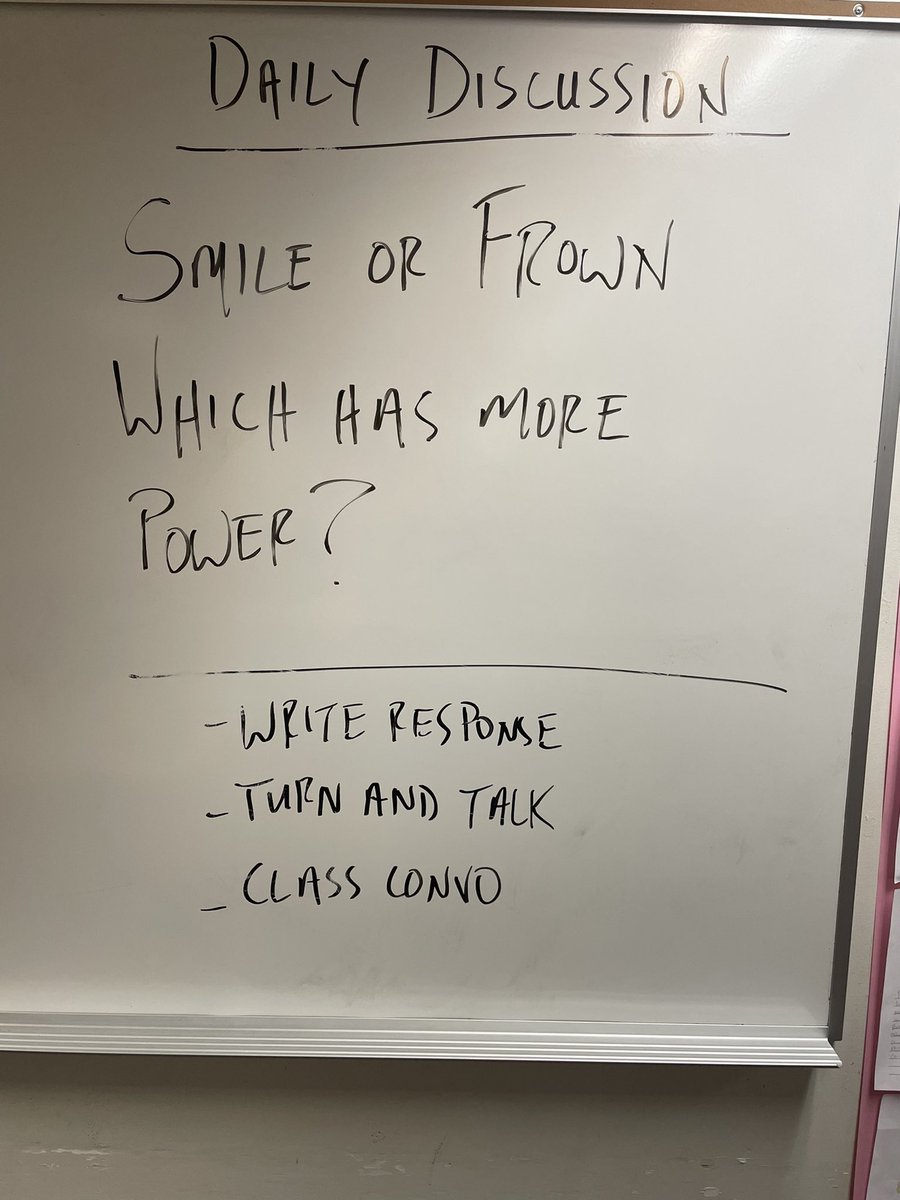 DAILY DISCUSSION
SMILE OR FROWN
WHICH HAS MORE
POWER?
- WRITE RESPONSE
- TURN AND TALK
- CLASS CONVO